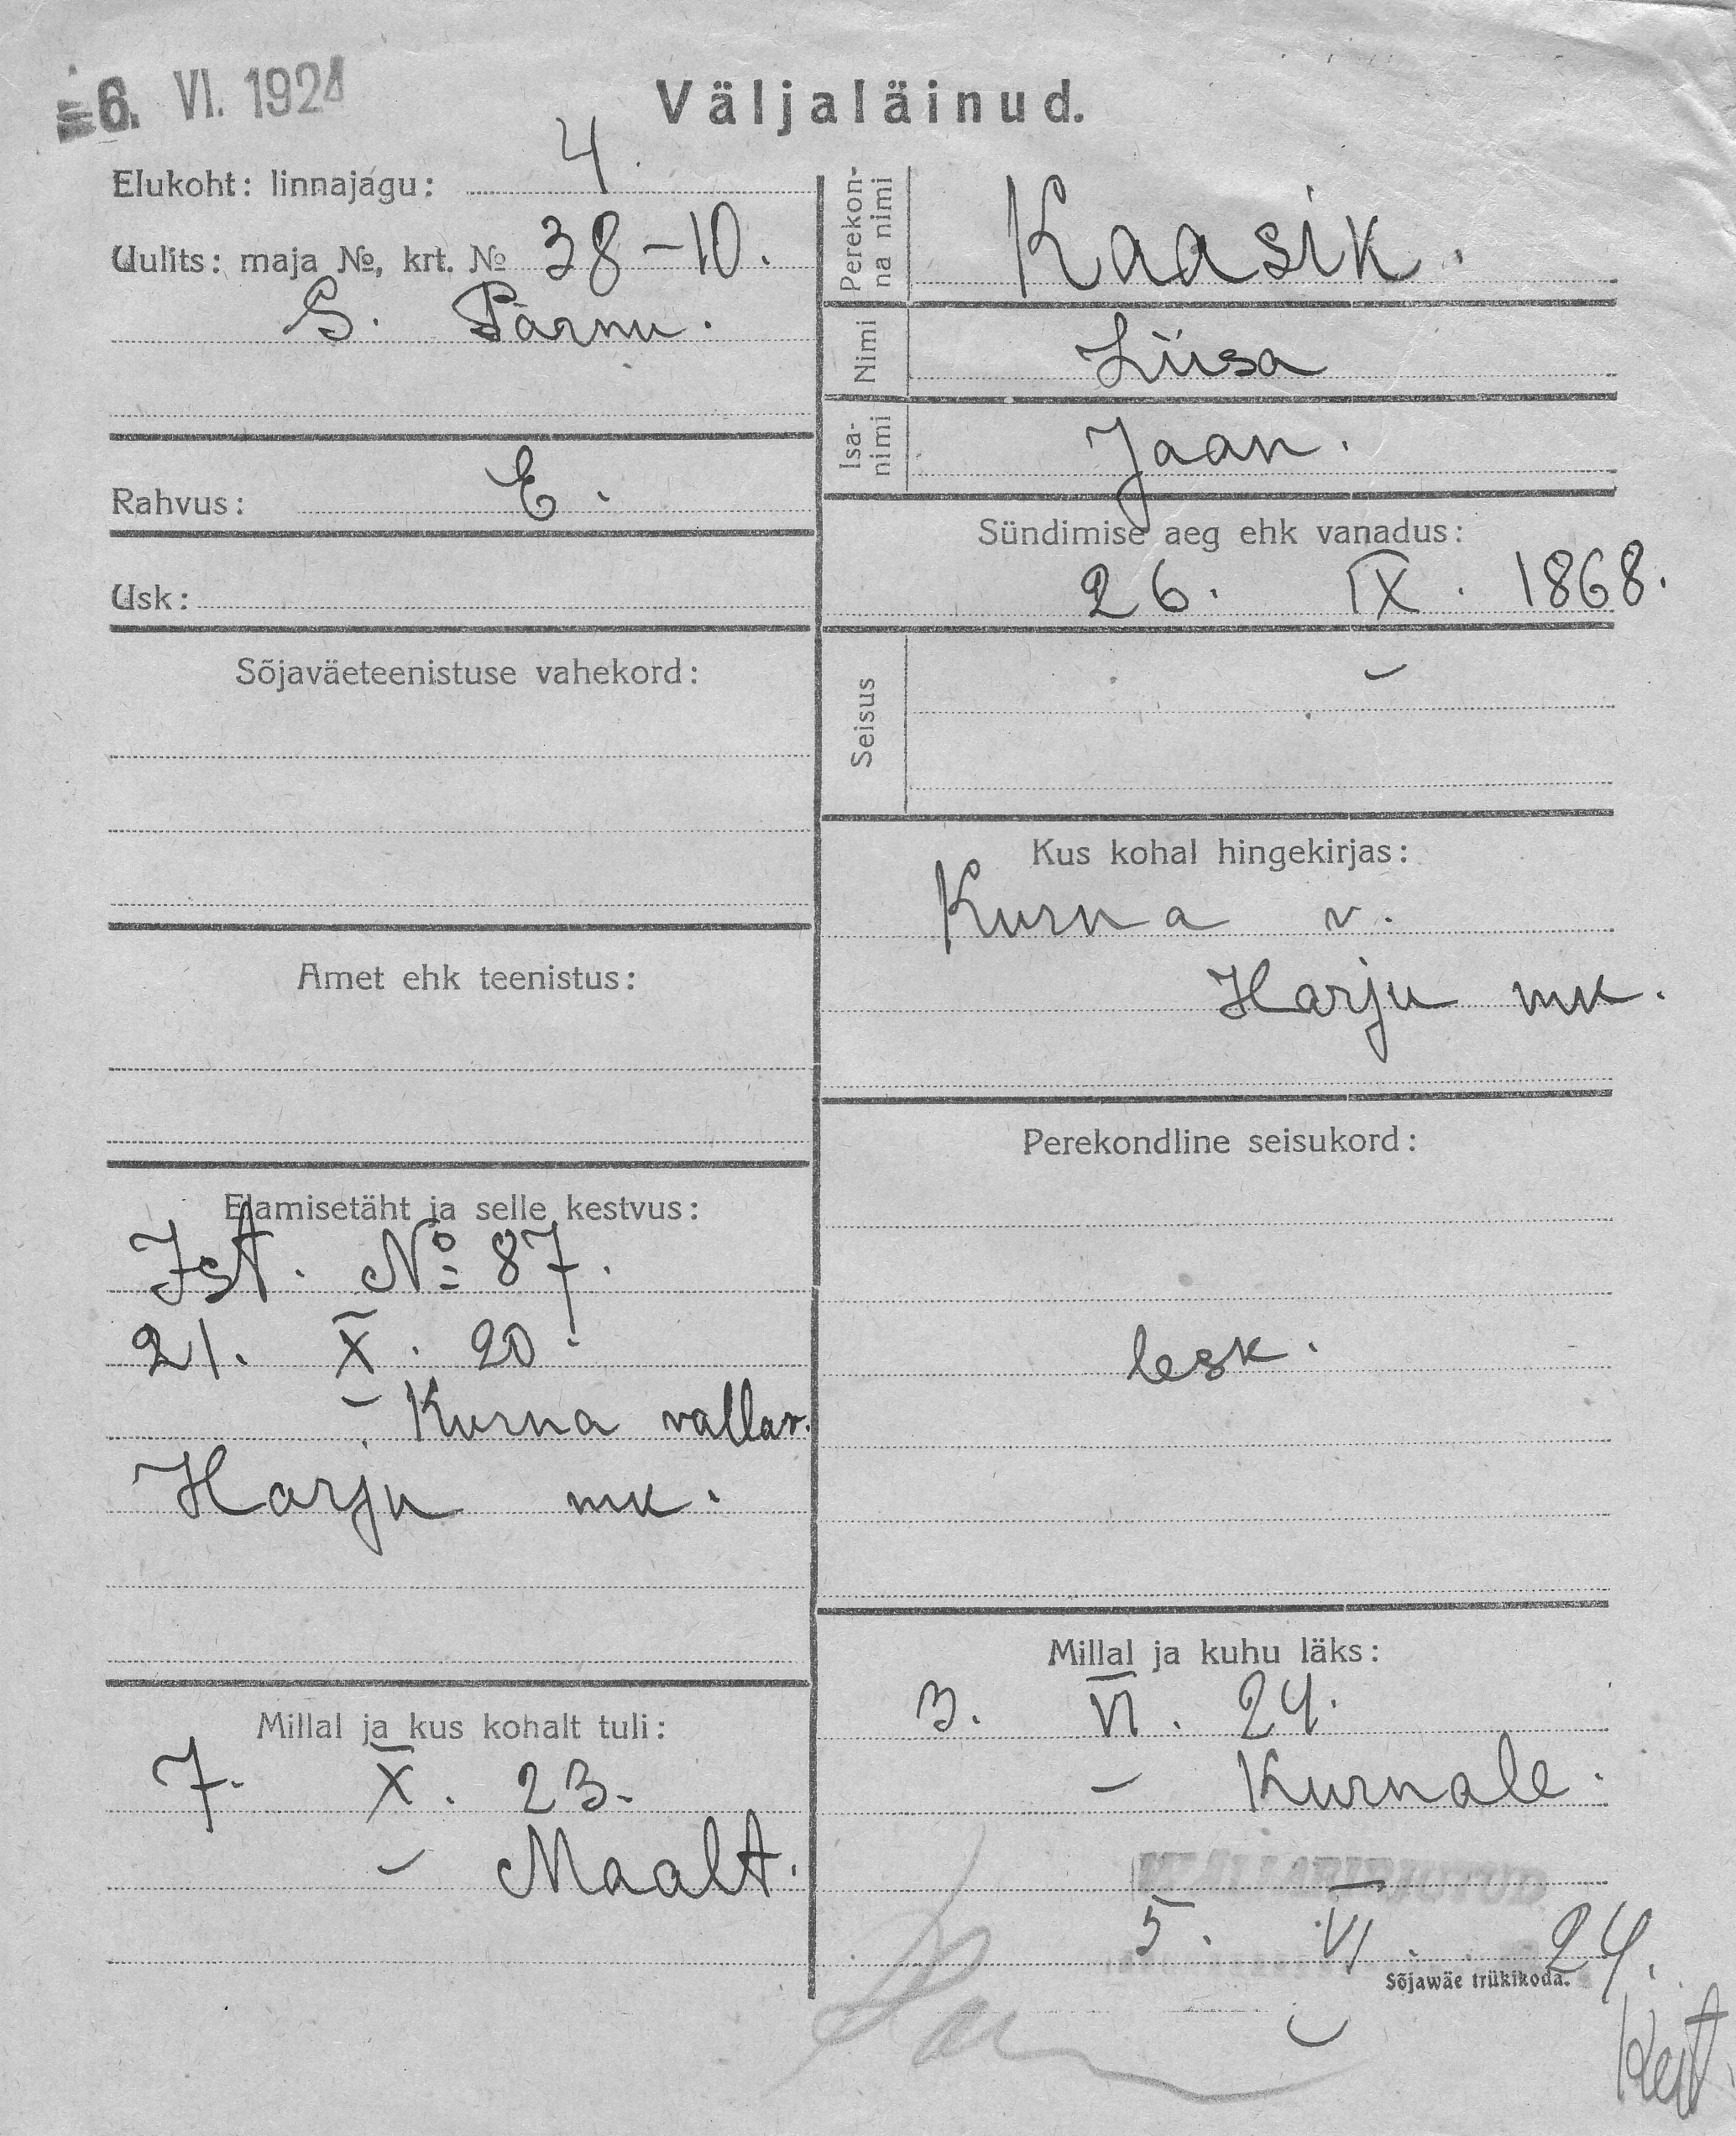 6. VI. 1924
Väljaläinud.
Elukoht: linnajagu: 4.
Uulits: maja №, krt. № 38-10.
S. Pärnu.
Rahvus: E.
Usk:
Sõjaväeteenistuse vahekord:
Amet ehk teenistus:
Elamisetäht ja selle kestvus:
Ist. № 87.
21. X. 20.
- Kurna vallav.
Harju mk.
Millal ja kus kohalt tuli:
7. X. 23.
- Maalt.
Perekon-
na nimi
Kaasik.
Nimi
Liisa
Isa-
nimi
Jaan.
Sündimise aeg ehk vanadus:
26. IX. 1868.
Seisus
-
Kus kohal hingekirjas:
Kurna v.
Harju mk.
Perekondline seisukord:
lesk.
Millal ja kuhu läks:
3. VI. 24.
- Kurnale.
5. VI. 24.
Sõjawäe trükikoda.